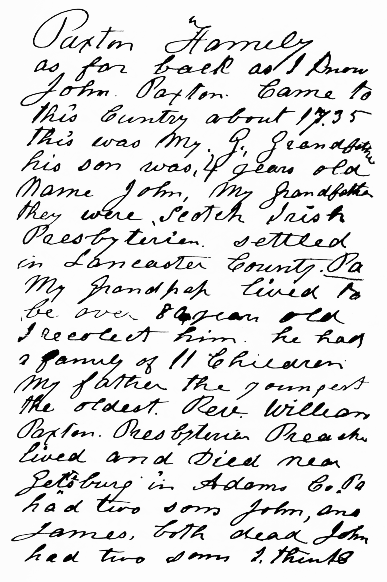 Paxton Famely
as far back as I Know
John Paxton. Came to
this Cuntry about 1735
this was My G. Grandfather
his son was 4 years old
Name John, My Grandfather
they were Scotch Irish
Presbyterien settled
in Lancaster County. Pa
My Grandpap lived to
be over 80 years old
I recolect him. he had
a family of 11 Children
My father the youngest
the oldest. Rev. William
Paxton. Presbyterien Preacher
lived and Died near
Getsburg in Adams Co. Pa
had two sons John, and
James, both dead John
had two sons I think